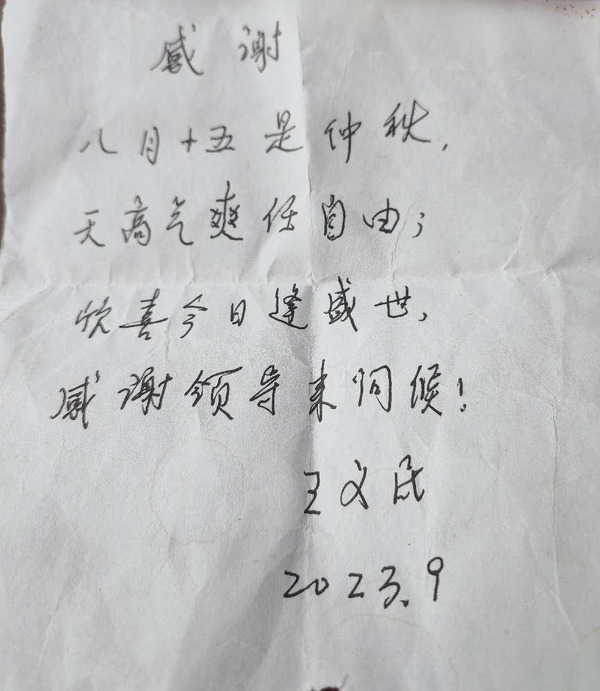 感谢
八月十五是仲秋,
天高气爽任自由;
欣喜今日逢盛世,
感谢领导来问候!
王文成
2023.9